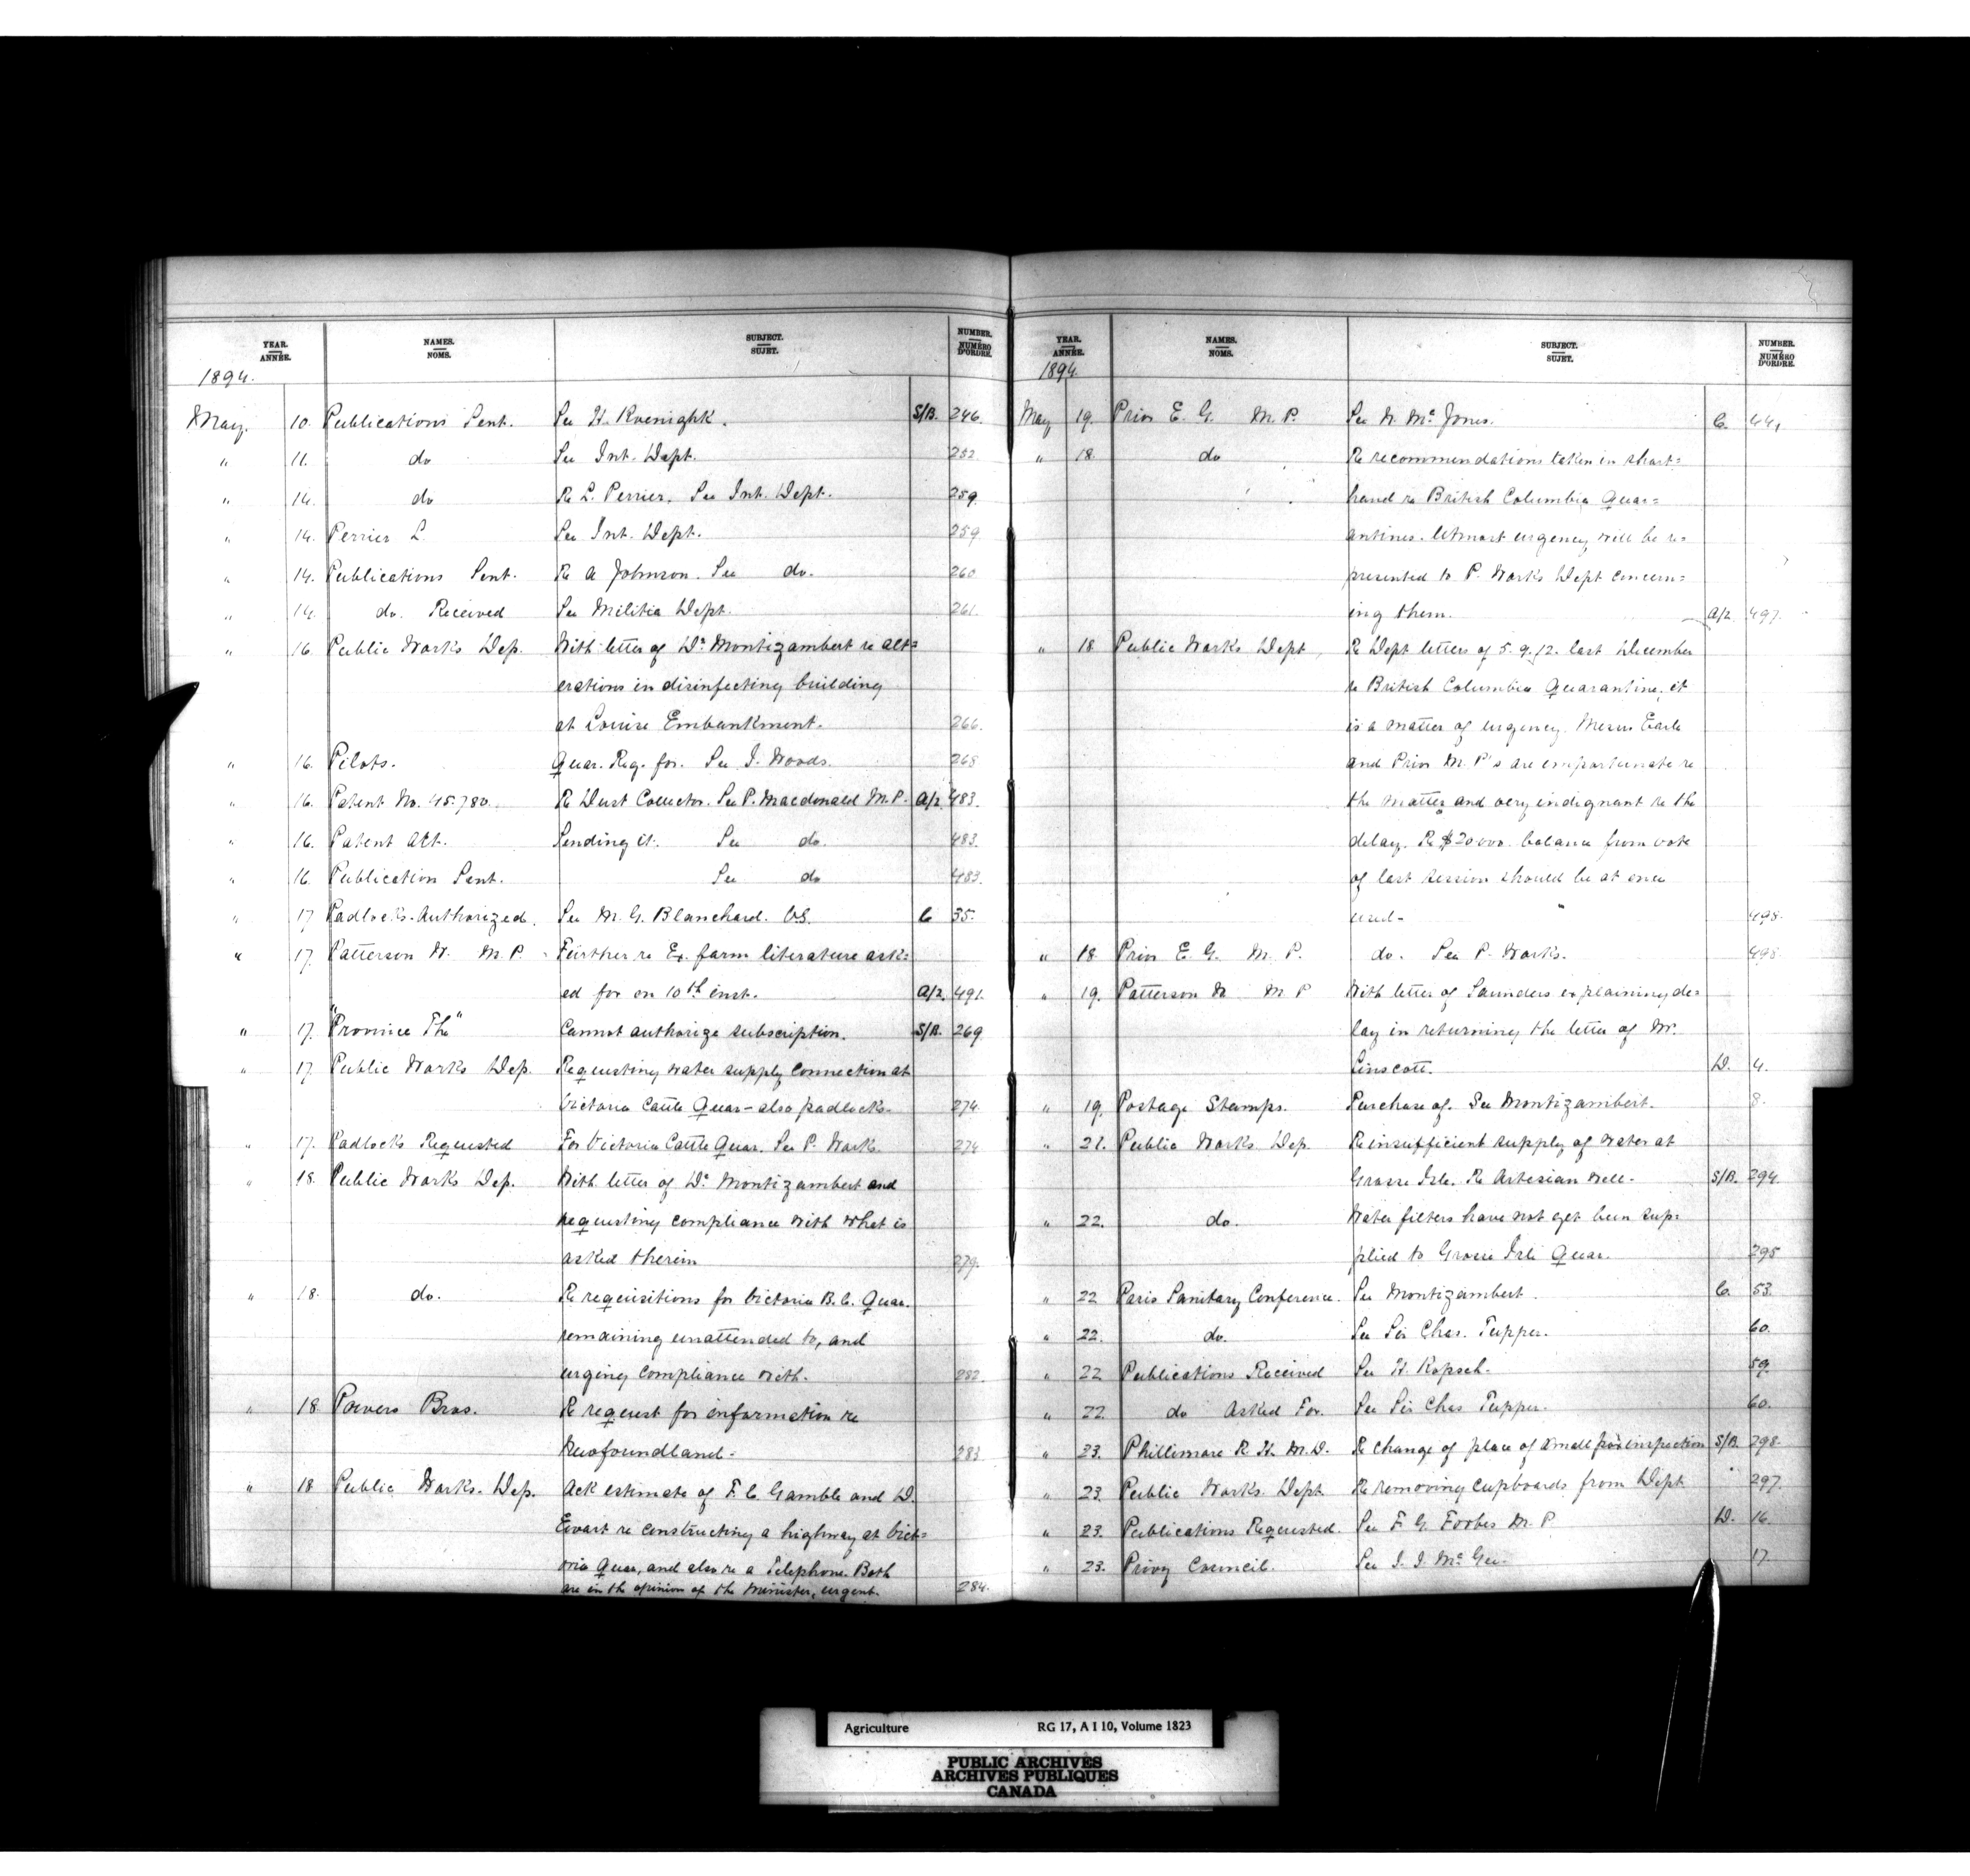 YEAR.
ANNÉE.
NAMES.
NOMS.
SUBJECT.
SUJET.
NUMBER.
NUMÉRO
D'ORDRE.
1894.
May. 10. Publications Sent. See H. Kvenighk. S/B. 246.
" 11. do See Int. Dept. 252
" 14. do Re L. Perrier. See Int. Dept. 259
" 14. Perrier L. See Int. Dept. 259
" 14. Publications Sent. Re A Johnson. See do. 260
" 14. do. Received See Militia Dept. 261.
" 16. Public Works Dep. With letter of Dr. Montizambert re alt=
erations in disinfecting building
at Louise Embankment. 266.
" 16. Pilots. Quar. Reg. for. See J. Woods. 268
" 16. Patent No. 45.780. Re Dust Collector. See P. Macdonald M.P. A/2 483.
" 16. Patent Act. Sending it. See do. 483.
" 16. Publication Sent. See do 483.
" 17 Padlocks Authorized. See M. G. Blanchard. V.S. C 35.
" 17. Patterson W. M.P. Further re Ex. farm literature ask=
ed for on 10th inst. A/2. 491.
" 17. "Province The" Cannot authorize subscription. S/B. 269
" 17. Public Works Dep. Requesting water supply connection at
Victoria Cattle Quar - also padlocks. 274.
" 17. Padlocks Requested For Victoria Cattle Quar. See P. Works. 274
" 18. Public Works Dep. With letter of Dr. Montizambert and
requesting compliance with what is
asked therein 279.
" 18. do. Re requisitions for Victoria B.C. Quar.
remaining unattended to, and
urging compliance with. 282.
" 18 Powers Bros. Re request for information re
Newfoundland - 283
" 18 Public Works. Dep. Ack estimate of F. C. Gamble and D.
Ewart re constructing a highway at Vict=
oria Quar, and also re a Telephone. Both
are in the opinion of the Minister, urgent. 284.
YEAR.
ANNÉE.
NAMES.
NOMS.
SUBJECT.
SUJET.
NUMBER.
NUMÉRO
D'ORDRE.
1894.
May 19. Prior E. G. M. P. See W. Mc Jones. C. 441
" 18. do Re recommendations taken in short=
hand re British Columbia Quar=
antines. Utmost urgency will be re=
presented to P. Works Dept concern=
ing them. A/2 497.
" 18 Public Works Dept Re Dept letters of 5. 9. 12. last December
re British Columbia Quarantine, it
is a matter of urgency. Messrs Earle
and Prior M. P's are importunate re
the matter and very indignant re the
delay. Re $20000. balance from vote
of last session should be at once
used - 498.
" 18 Prior E. G. M. P. do. See P. Works. 498.
" 19. Patterson W M P With letter of Saunders explaining de=
lay in returning the letter of Mr.
Linscott. D. 4.
" 19. Postage Stamps. Purchase of. See Montizambert. 8.
" 21. Public Works Dep. Re insufficient supply of water at
Grosse Isle. Re Artesian well. S/B. 294.
" 22. do. Water filters have not yet been sup=
plied to Grosse Isle Quar. 295
" 22 Paris Sanitary Conference. See Montizambert. C. 53.
" 22. do. See Sir Chas. Tupper. 60.
" 22 Publications Received See H. Kopsch. 59.
" 22. do Asked For. See Sir Chas Tupper. 60.
" 23. Phillimore R. H. M.D. Re change of place of small pox inspection S/B 298.
" 23. Public Works Dept. Re removing cupboards from Dept " 297.
" 23. Publications Requested. See F. G. Forbes M. P. D. 16.
" 23. Privy Council. See J. J. McGee. 17.
Agriculture RG 17, A I 10, Volume 1823
PUBLIC ARCHIVES
ARCHIVES PUBLIQUES
CANADA